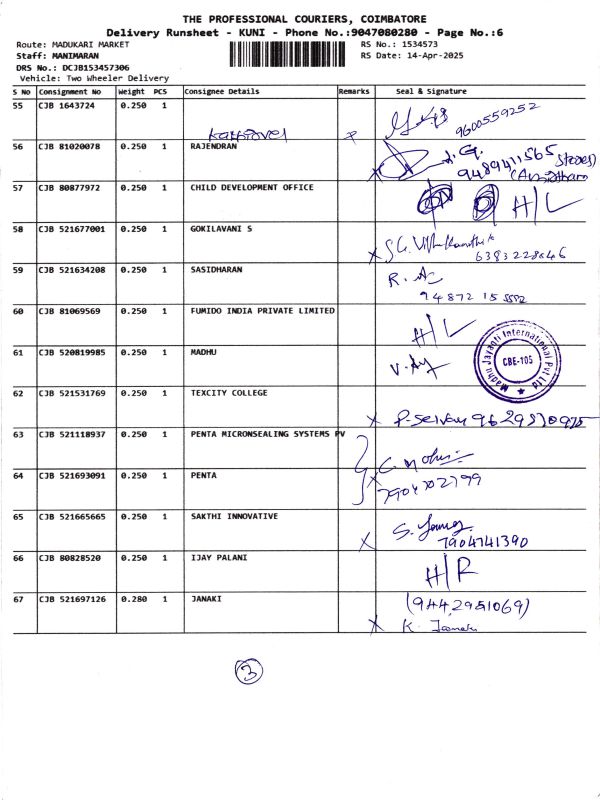 THE PROFESSIONAL COURIERS, COIMBATORE
Delivery Runsheet - KUNI - Phone No.:9047080280 - Page No.:6
Route: MADUKARI MARKET RS No.: 1534573
Staff: MANIMARAN RS Date: 14-Apr-2025
DRS No.: DCJB153457306
Vehicle: Two Wheeler Delivery
S No Consignment No Weight PCS Consignee Details Remarks Seal & Signature
55 CJB 1643724 0.250 1
9600559252
56 CJB 81020078 0.250 1 RAJENDRAN
9489411565
57 CJB 80877972 0.250 1 CHILD DEVELOPMENT OFFICE
H/L
58 CJB 521677001 0.250 1 GOKILAVANI S
6383228646
59 CJB 521634208 0.250 1 SASIDHARAN
60 CJB 81069569 0.250 1 FUMIDO INDIA PRIVATE LIMITED
H/L
61 CJB 520819985 0.250 1 MADHU
Madhu Jayanti International Pvt Ltd
CBE-105
62 CJB 521531769 0.250 1 TEXCITY COLLEGE
P. Selvam 9629870975
63 CJB 521118937 0.250 1 PENTA MICRONSEALING SYSTEMS PV
64 CJB 521693091 0.250 1 PENTA
7904702799
65 CJB 521665665 0.250 1 SAKTHI INNOVATIVE
7904741390
66 CJB 80828520 0.250 1 IJAY PALANI
H/R
67 CJB 521697126 0.280 1 JANAKI
(9442951069)
K. Janaki
3